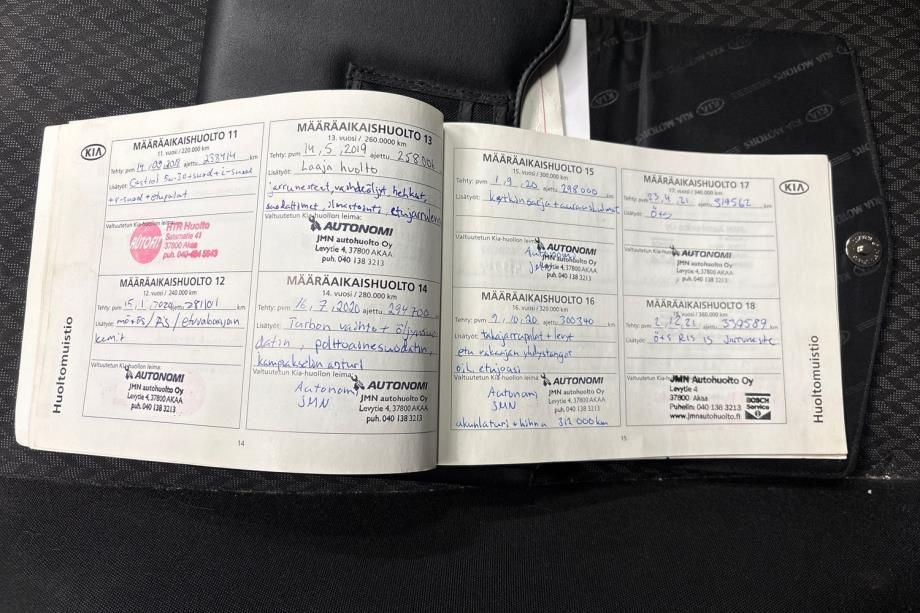 KIA
MÄÄRÄAIKAISHUOLTO 11
11. vuosi / 220.000 km
Tehty: pvm ajettu: 233414 km
Lisätyöt: Castrol 5w-30+suod+i-suod
+r-suod+etupalat
Valtuutetun Kia-huollon leima:
AUTOFIT
RTR Huolto
37800 Akaa
MÄÄRÄAIKAISHUOLTO 12
12. vuosi / 240.000 km
Tehty: pvm 15.1.2020 ajettu: 281101 km
Lisätyöt:
Valtuutetun Kia-huollon leima:
AUTONOMI
JMN autohuolto Oy
Levytie 4, 37800 AKAA
puh. 040 138 3213
MÄÄRÄAIKAISHUOLTO 13
13. vuosi / 260.0000 km
Tehty: pvm 14.5.2019 ajettu:
Lisätyöt: Laaja huolto
jarrunesteet, vaihdeöljyt, hehkut,
suodattimet, ilmastointi,
Valtuutetun Kia-huollon leima:
AUTONOMI
JMN autohuolto Oy
Levytie 4, 37800 AKAA
puh. 040 138 3213
MÄÄRÄAIKAISHUOLTO 14
14. vuosi / 280.000 km
Tehty: pvm 16.7.2020 ajettu: 294700 km
Lisätyöt: Turbon vaihto + öljynsuo
datin, polttoainesuodatin,
kampiakselin anturi
Valtuutetun Kia-huollon leima:
Autonomi
JMN
AUTONOMI
JMN autohuolto Oy
Levytie 4, 37800 AKAA
puh. 040 138 3213
Huoltomuistio
14
KIA
MÄÄRÄAIKAISHUOLTO 15
15. vuosi / 300.000 km
Tehty: pvm 1.9.20 ajettu: 298000 km
Lisätyöt:
Valtuutetun Kia-huollon leima:
AUTONOMI
JMN autohuolto Oy
Levytie 4, 37800 AKAA
puh. 040 138 3213
MÄÄRÄAIKAISHUOLTO 16
16. vuosi / 320.000 km
Tehty: pvm 2.10.20 ajettu: 300340 km
Lisätyöt: takajarrupalat + levyt
Valtuutetun Kia-huollon leima:
Autonomi
JMN
AUTONOMI
JMN autohuolto Oy
Levytie 4, 37800 AKAA
puh. 040 138 3213
312000km
MÄÄRÄAIKAISHUOLTO 17
17. vuosi / 340.000 km
Tehty: pvm 23.4.21 ajettu: 319562 km
Lisätyöt: ö+s
Valtuutetun Kia-huollon leima:
AUTONOMI
JMN autohuolto Oy
Levytie 4, 37800 AKAA
puh. 040 138 3213
MÄÄRÄAIKAISHUOLTO 18
18. vuosi / 360.000 km
Tehty: pvm 2.12.21 ajettu: 339589 km
Lisätyöt: ö+s
Valtuutetun Kia-huollon leima:
JMN Autohuolto Oy
Levytie 4
37800 Akaa
Puhelin: 040 138 3213
www.jmnautohuolto.fi
BOSCH
Service
Huoltomuistio
15
KIA MOTORS